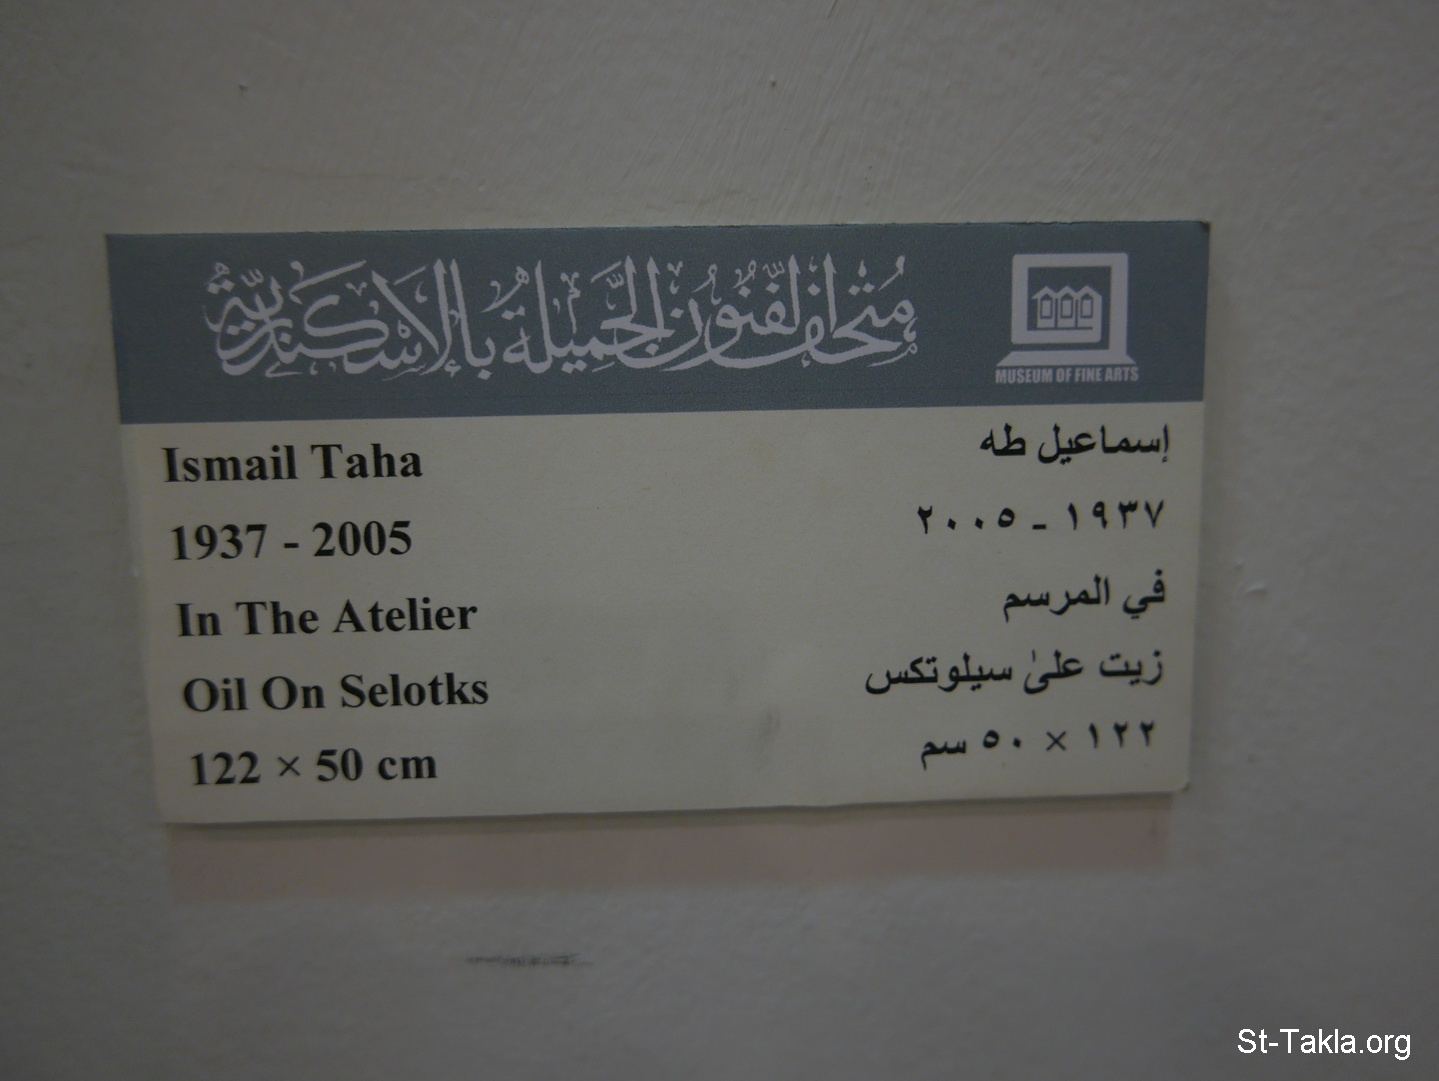 متحف الفنون الجميلة بالإسكندرية
MUSEUM OF FINE ARTS
Ismail Taha
1937 - 2005
In The Atelier
Oil On Selotks
122 × 50 cm
إسماعيل طه
١٩٣٧ - ٢٠٠٥
في المرسم
زيت على سيلوتكس
١٢٢ × ٥٠ سم
St-Takla.org